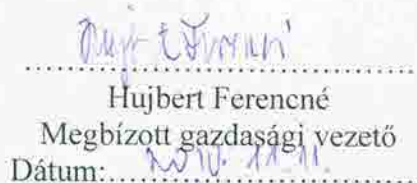 ....................................................
Hujbert Ferencné
Megbízott gazdasági vezető
Dátum:....................................